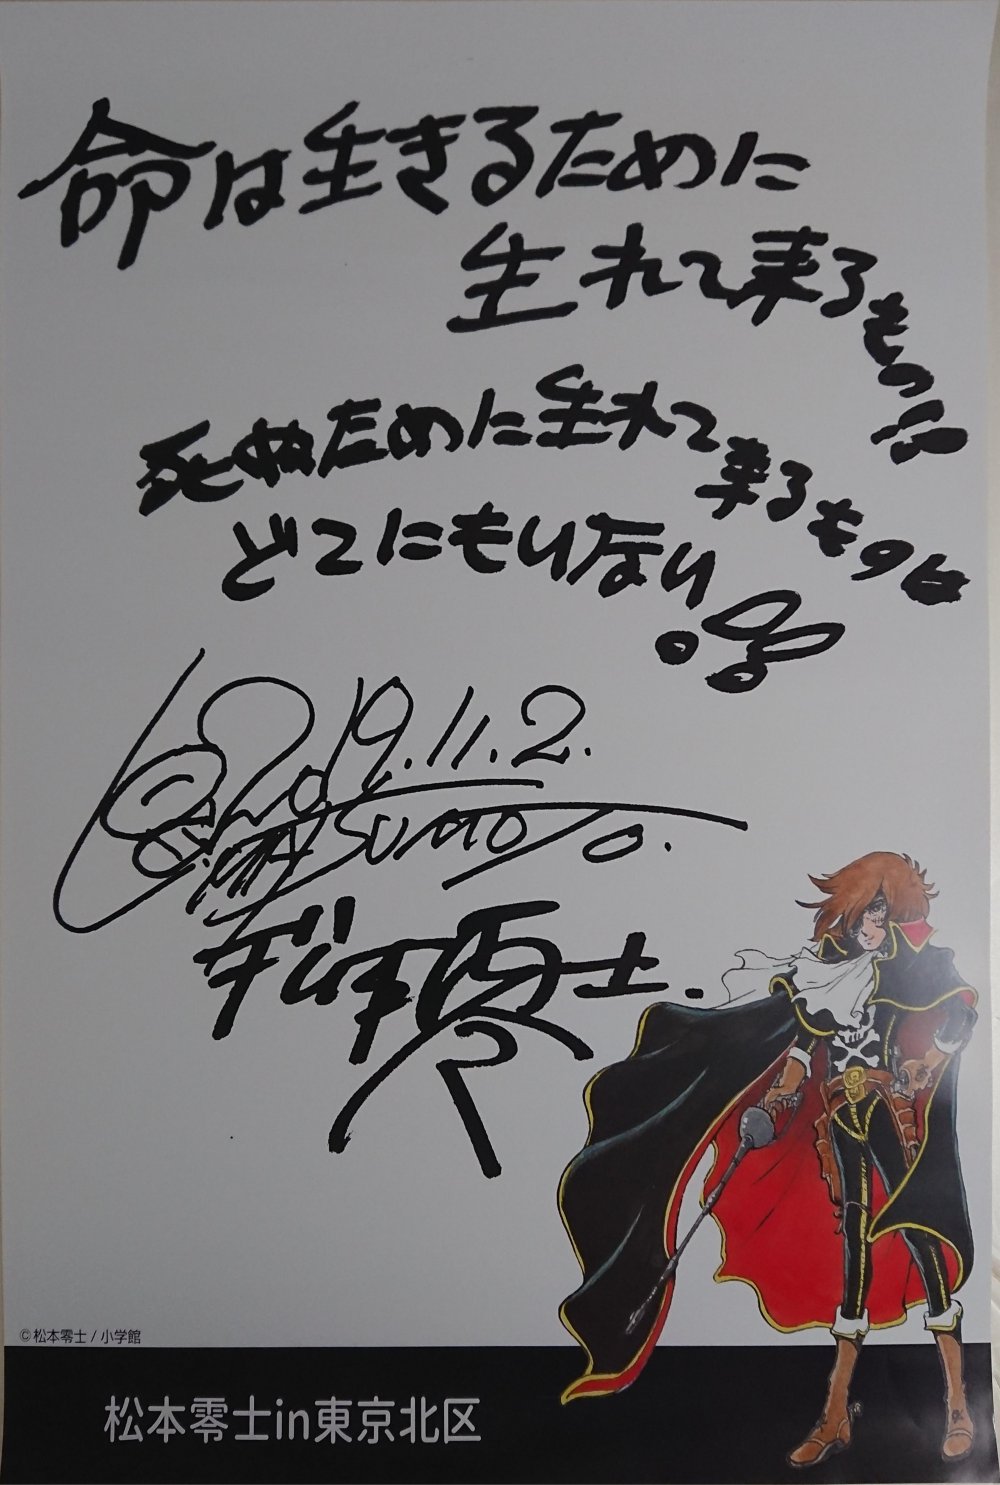 命は生きるために
生れて来るもの!!
死ぬために生れて来るものは
どこにもいない!!
2019.11.2.
L. MATSUMOTO.
松本零士.
©松本零士 / 小学館
松本零士in東京北区